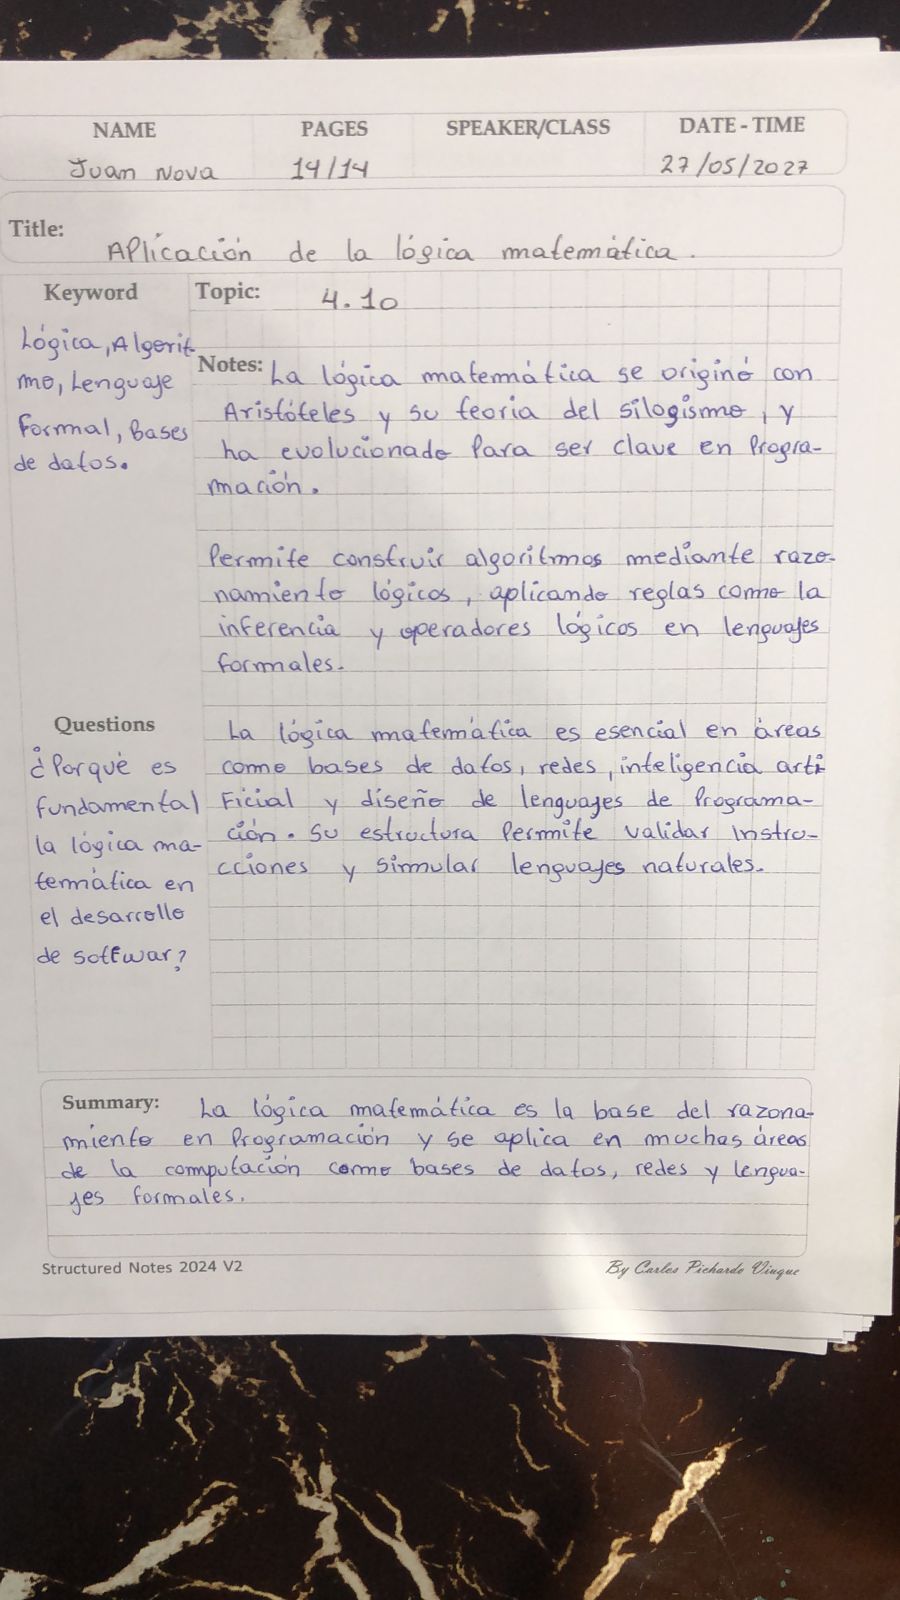 NAME PAGES SPEAKER/CLASS DATE-TIME
Juan Nova 14/14 27/05/2027
Title: Aplicación de la lógica matemática.
Keyword
Lógica, Algorit
mo, Lenguaje
formal, Bases
de datos.
Topic: 4.10
Notes: La lógica matemática se originó con
Aristóteles y su teoria del silogismo, y
ha evolucionado Para ser clave en Progra-
mación.
Permite construir algoritmos mediante razo-
namiento lógicos, aplicando reglas como la
inferencia y operadores lógicos en lenguajes
formales.
La lógica matemática es esencial en áreas
como bases de datos, redes, inteligencia arti
Ficial y diseño de lenguajes de Programa-
ción. Su estructura Permite validar Instru-
cciones y simular lenguajes naturales.
Questions
¿Porqué es
fundamental
la lógica ma-
temática en
el desarrollo
de softwar?
Summary: La lógica matemática es la base del razona-
miento en Programación y se aplica en muchas áreas
de la computación como bases de datos, redes y lengua-
jes formales.
Structured Notes 2024 V2
By Carlos Pichardo Viuque